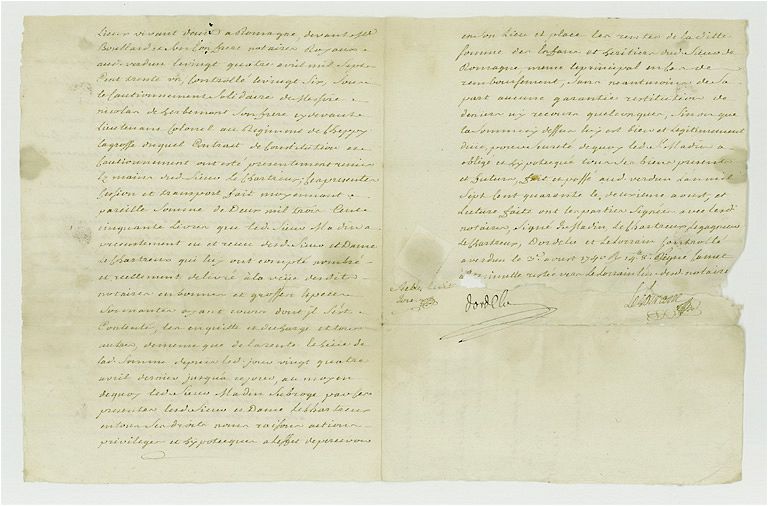 Sieur vivant dont a Romagne, devant Me
Boullard et son Confrere notaires Royaux
aud verdun le vingt quatre avril mil Sept
Cent trente un Controllé le vingt Six, Sous
le Cautionnement Solidaire de Messire
nicolas de herbemont Son frere cy devant
Lieutenant Colonel au Regiment de
la grosse duquel Contrat de Constitution et
Cautionnement ont eté presentement remis
es mains dud Sieur le Chartreux, la presente
Cession et transport fait moyennant
pareille Somme de Deux mil trois Cent
cinquante Livres que led Sieur Madin a
recu desd Sieur et Dame
le Chartreux qui les ont compté nombré
et reellement delivré à la vüe desdits
notaires en bonnes et grosses Especes
Sonnantes ayant cours dont il Sest
Contenté, les en quitte et decharge et tous
autres, de meme que de la rente
lad Somme depuis led jour vingt quatre
avril dernier jusqua ce jour, au moyen
de quoy led Sieur Madin Subroge par les
presentes lesd Sieur et Dame le Chartreux
en tous Ses droits noms raisons actions
privileges et hypotecques a leffet de percevoir
en Son Lieu et place les rentes de la ditte
Somme des Enfans et heritiers dud Sieur de
Romagne, meme le principal en Cas de
remboursement, Sans neantmoins de Sa
part aucune garantie restitution de
deniers ny recours quelconques, Sinon que
la Somme y est düe et Legitimement
düe, pour Sureté de quoy led Sr Madin a
obligé et hypotequé tous Ses biens presents
et futurs, fait et passé aud verdun L'an mil
Sept Cent quarante le deuxieme aoust, et
Lecture faite ont les parties Signées avec lesd
notaires, Signé Madin Le Chartreux
Le Chartreux, Dordelu et Lelorrain Controllé
a verdun le 3e aoust 1740
la minutte restée vers Lelorrain l'un desd notaires
Dordelu
Lelorrain